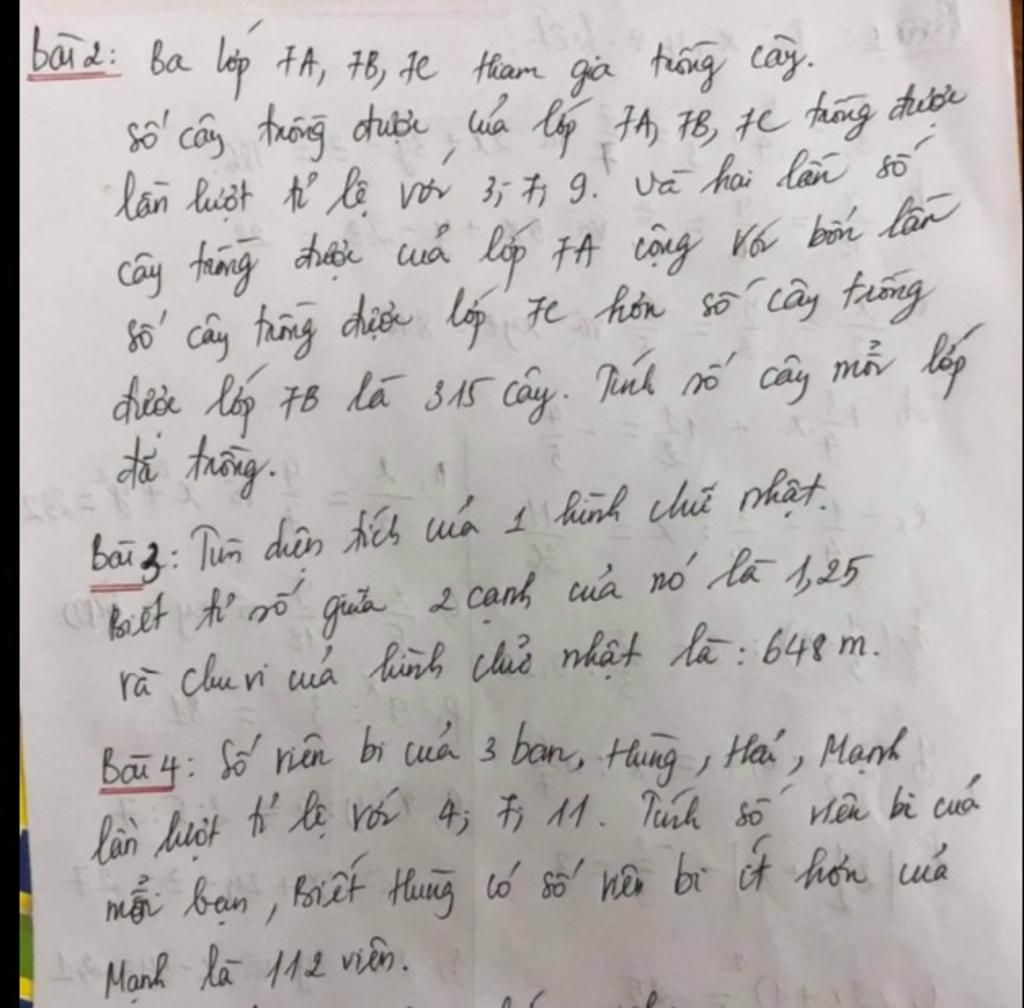 bài 2: Ba lớp 7A, 7B, 7C tham gia trồng cây.
số cây trồng được của lớp 7A, 7B, 7C trồng được
lần lượt tỉ lệ với 3; 7; 9. và hai lần số
cây trồng được của lớp 7A cộng với bốn lần
số cây trồng được lớp 7C hơn số cây trồng
được lớp 7B là 315 cây. Tính số cây mỗi lớp
đã trồng.
Bài 3: Tìm diện tích của 1 hình chữ nhật.
Biết tỉ số giữa 2 cạnh của nó là 1,25
và chu vi của hình chữ nhật là: 648 m.
Bài 4: Số viên bi của 3 bạn, Hùng, Hải, Mạnh
lần lượt tỉ lệ với 4; 7; 11. Tính số viên bi của
mỗi bạn, Biết Hùng có số viên bi ít hơn của
Mạnh là 112 viên.